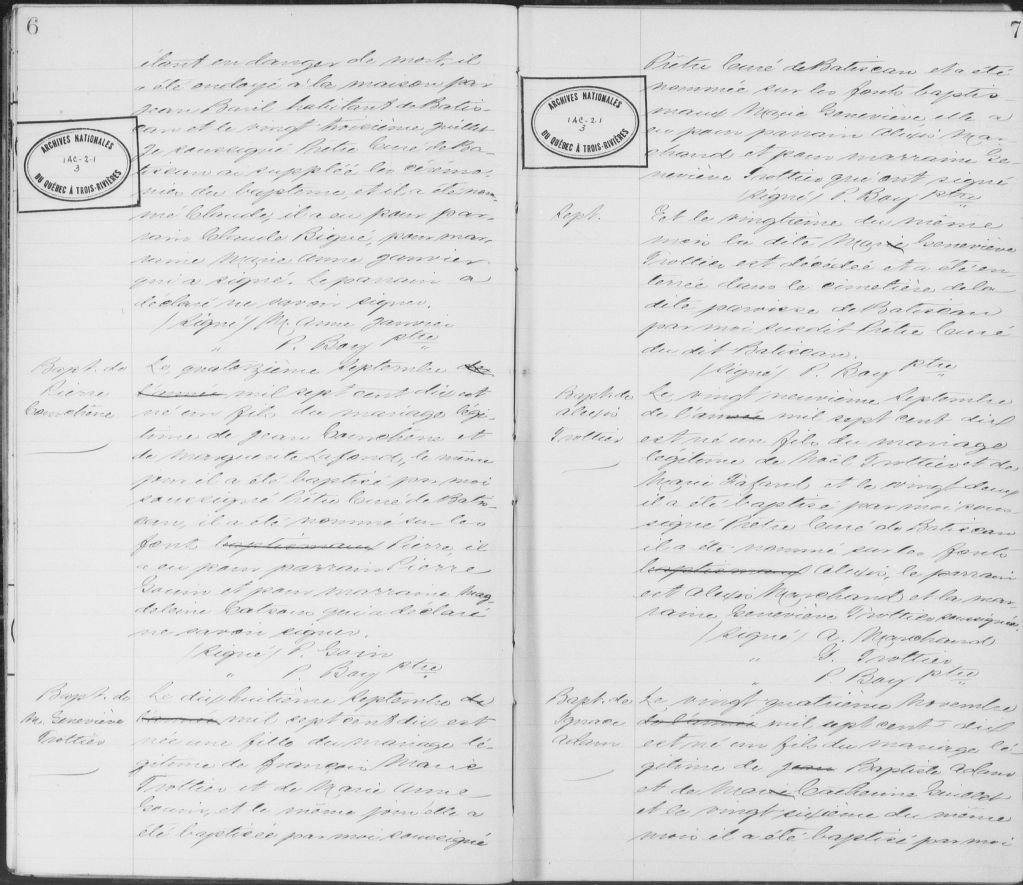 6
étant en danger de mort, il
a été ondoyé à la maison par
Jean Baril habitant de Batis-
can et le vingt troisième juillet
Je soussigné Prêtre Curé de Ba-
tiscan a suppléé les cérémo-
nies du baptême, et il a été nom-
mé Claude, il a eu pour par-
rain Claude Bigué, pour mar-
raine Marie Anne Janvier
qui a signé. Le parrain a
declaré ne savoir signer.
/Signé/ M. Anne Janvier
" P. Bay ptre
ARCHIVES NATIONALES
1AC-2-1
3
DU QUÉBEC À TROIS-RIVIÈRES
Bapt. de
Pierre
Le quatorzième Septembre de
l'année mil sept cent dix est
né un fils du mariage légi-
time de Jean et
de Marguerite Lafond, le même
jour il a été baptisé par moi
soussigné Prêtre Curé de Batis-
can, il a été nommé sur les
fonts baptismaux Pierre, il
a eu pour parrain Pierre
Gouin et pour marraine Mag-
deleine qui a declaré
ne savoir signer.
/Signé/ P. Goin
" P. Bay ptre
Bapt. de
M. Geneviève
Trottier
Le dixhuitième Septembre de
l'année mil sept cent dix est
née une fille du mariage lé-
gitime de François Marie
Trottier et de Marie Anne
Gouin, et le même jour elle a
été baptisée par moi soussigné
7
Prêtre Curé de Batiscan et a été
nommée sur les fonts baptis-
maux Marie Geneviève, elle a
eu pour parrain Alexis Mar-
chand et pour marraine Ge-
neviève Trottier qui ont signé
/Signé/ P. Bay ptre
ARCHIVES NATIONALES
1AC-2-1
3
DU QUÉBEC À TROIS-RIVIÈRES
Sept.
Et le vingtième du même
mois la dite Marie Geneviève
Trottier est décédée et a été en-
terrée dans le cimetière de la
dite paroisse de Batiscan
par moi susdit Prêtre Curé
du dit Batiscan.
/Signé/ P. Bay ptre
Bapt. de
Alexis
Trottier
Le vingt neuvième Septembre
de l'année mil sept cent dix
est né un fils du mariage
légitime de Noël Trottier et de
Marie et le vingt
il a été baptisé par moi sous-
signé Prêtre Curé de Batiscan
il a été nommé sur les fonts
baptismaux Alexis, le parrain
est Alexis Marchand et la mar-
raine Geneviève Trottier soussignés.
/Signé/ A. Marchand
" G. Trottier
P. Bay ptre
Bapt. de
Ignace
Adam
Le vingt quatrième Novembre
de l'année mil sept cent dix
est né un fils du mariage lé-
gitime de Jean Baptiste Adam
et de Marie Catherine
et le vingt sixième du même
mois il a été baptisé par moi